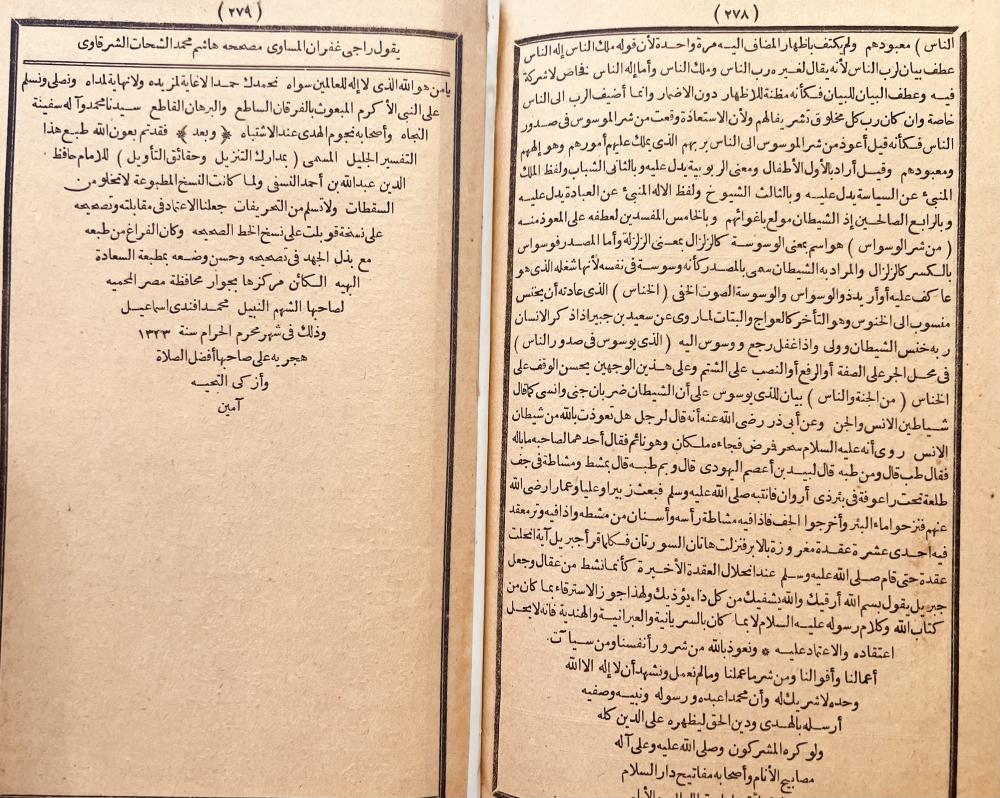 (٢٧٨)
الناس) معبودهم ولم يكتف باظهار المضاف اليه مرة واحدة لأن قوله ملك الناس إله الناس
عطف بيان لرب الناس لأنه يقال لغيره رب الناس وملك الناس وأما إله الناس فخاص لا شركة
فيه وعطف البيان للبيان فكأنه مظنة للاظهار دون الاضمار وانما أضيف الرب الى الناس
خاصة وان كان رب كل مخلوق تشريفا لهم ولأن الاستعاذة وقعت من شر الموسوس في صدور
الناس فكأنه قيل أعوذ من شر الموسوس الى الناس بربهم الذى يملك عليهم أمورهم وهو إلههم
ومعبودهم وقيل أراد بالأول الأطفال ومعنى الربوبية يدل عليه وبالثانى الشباب ولفظ الملك
المنبئ عن السياسة يدل عليه وبالثالث الشيوخ ولفظ الاله المنبئ عن العبادة يدل عليه
وبالرابع الصالحين إذ الشيطان مولع باغوائهم وبالخامس المفسدين لعطفه على المعوذ منه
(من شر الوسواس) هو اسم بمعنى الوسوسة كالزلزال بمعنى الزلزلة وأما المصدر فوسواس
بالكسر كالزلزال والمراد به الشيطان سمى بالمصدر كأنه وسوسة فى نفسه لأنها شغله الذى هو
عاكف عليه أو أريد ذو الوسواس والوسوسة الصوت الخفى (الخناس) الذى عادته أن يخنس
منسوب الى الخنوس وهو التأخر كالعواج والبتات لما روى عن سعيد بن جبير اذا ذكر الانسان
ربه خنس الشيطان وولى واذا غفل رجع ووسوس اليه (الذى يوسوس فى صدور الناس)
فى محل الجر على الصفة أو الرفع أو النصب على الشتم وعلى هذين الوجهين يحسن الوقف على
الخناس (من الجنة والناس) بيان للذى يوسوس على أن الشيطان ضربان جنى وانسى كما قال
شياطين الانس والجن وعن أبى ذر رضى الله عنه أنه قال لرجل هل تعوذت بالله من شيطان
الانس روى أنه عليه السلام سحر فمرض فجاءه ملكان وهو نائم فقال أحدهما لصاحبه ما باله
فقال طب قال ومن طبه قال لبيد بن أعصم اليهودى قال وبم طبه قال بمشط ومشاطة فى جف
طلعة تحت راعوفة فى بئر ذى أروان فانتبه صلى الله عليه وسلم فبعث زبيرا وعليا وعمارا رضى الله
عنهم فنزحوا ماء البئر وأخرجوا الجف فاذا فيه مشاطة رأسه وأسنان من مشطه واذا فيه وتر معقد
فيه احدى عشرة عقدة مغروزة بالابر فنزلت هاتان السورتان فكلما قرأ جبريل آية انحلت
عقدة حتى قام صلى الله عليه وسلم عند انحلال العقدة الأخيرة كأنما نشط من عقال وجعل
جبريل يقول بسم الله أرقيك والله يشفيك من كل داء يؤذيك ولهذا جوز الاسترقاء بما كان من
كتاب الله وكلام رسوله عليه السلام لا بما كان بالسريانية والعبرانية والهندية فانه لا يحل
اعتقاده والاعتماد عليه * ونعوذ بالله من شرور أنفسنا ومن سيآت
أعمالنا وأقوالنا ومن شر ما عملنا وما لم نعمل ونشهد أن لا إله الا الله
وحده لا شريك له وأن محمدا عبده ورسوله ونبيه وصفيه
أرسله بالهدى ودين الحق ليظهره على الدين كله
ولو كره المشركون وصلى الله عليه وعلى آله
مصابيح الأنام وأصحابه مفاتيح دار السلام
(٢٧٩)
يقول راجى غفران المساوى مصححه هاشم محمد الشحات الشرقاوى
يا من هو الله الذى لا إله للعالمين سواه نحمدك حمدا لا غاية لمزيده ولا نهاية لمداه ونصلى ونسلم
على النبى الأكرم المبعوث بالفرقان الساطع والبرهان القاطع سيدنا محمد وآله سفينة
النجاه وأصحابه نجوم الهدى عند الاشتباه ﴿وبعد﴾ فقد تم بعون الله طبع هذا
التفسير الجليل المسمى (بمدارك التنزيل وحقائق التأويل) للامام حافظ
الدين عبد الله بن أحمد النسفى ولما كانت النسخ المطبوعة لا تخلو من
السقطات ولا تسلم من التحريفات جعلنا الاعتماد فى مقابلته وتصحيحه
على نسخة قوبلت على نسخ الخط الصحيحه وكان الفراغ من طبعه
مع بذل الجهد فى تصحيحه وحسن وضعه بمطبعة السعادة
البهيه الكائن مركزها بجوار محافظة مصر المحميه
لصاحبها الشهم النبيل محمد افندى اسماعيل
وذلك فى شهر محرم الحرام سنة ١٣٢٣
هجريه على صاحبها أفضل الصلاة
وأزكى التحيه
آمين